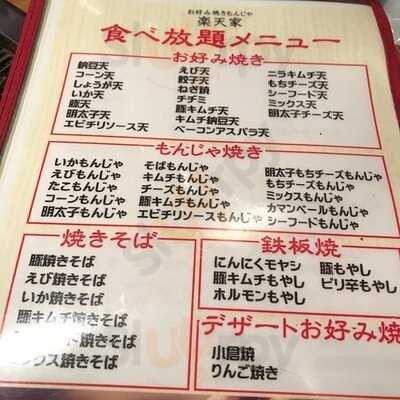 お好み焼きもんじゃ
楽天家
食べ放題メニュー
お好み焼き
納豆天
コーン天
しょうが天
いか天
豚天
明太子天
エビチリソース天
えび天
餃子天
ねぎ焼
チヂミ
豚キムチ天
キムチ納豆天
ベーコンアスパラ天
ニラキムチ天
もちチーズ天
シーフード天
ミックス天
明太子チーズ天
もんじゃ焼き
いかもんじゃ
えびもんじゃ
たこもんじゃ
コーンもんじゃ
明太子もんじゃ
そばもんじゃ
キムチもんじゃ
チーズもんじゃ
豚キムチもんじゃ
エビチリソースもんじゃ
明太子もちチーズもんじゃ
もちチーズもんじゃ
ミックスもんじゃ
カマンベールもんじゃ
シーフードもんじゃ
焼きそば
豚焼きそば
えび焼きそば
いか焼きそば
豚キムチ焼きそば
焼きそば
ックス焼きそば
鉄板焼
にんにくモヤシ
豚キムチもやし
ホルモンもやし
豚もやし
ピリ辛もやし
デザートお好み焼
小倉焼
りんご焼き